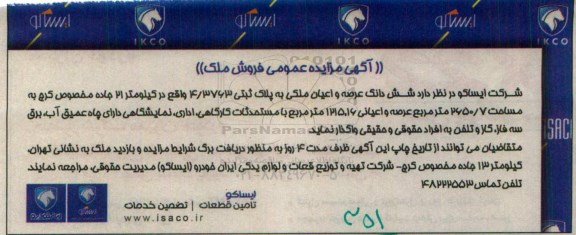 IKCO IKCO IKCO
(( آگهی مزایده عمومی فروش ملک))
شرکت ایساکو در نظر دارد شش دانگ عرصه و اعیان ملکی به پلاک ثبتی ۴/۳۷۶۳ واقع در کیلومتر ۲۱ جاده مخصوص کرج به
مساحت ۲۶۵۰/۷ متر مربع عرصه و اعیانی ۱۲۱۵.۱۶ متر مربع با مستحدثات کارگاهی، اداری، نمایشگاهی دارای چاه عمیق آب، برق
سه فاز، گاز و تلفن به افراد حقوقی و حقیقی واگذار نماید
متقاضیان می توانند از تاریخ چاپ این آگهی ظرف مدت ۴ روز به منظور دریافت برگ شرایط مزایده و بازدید ملک به نشانی تهران،
کیلومتر ۱۳ جاده مخصوص کرج- شرکت تهیه و توزیع قطعات و لوازم یدکی ایران خودرو (ایساکو) مدیریت حقوقی، مراجعه نمایند
تلفن تماس ۴۸۲۲۲۵۵۳
ایساکو
تامین قطعات | تضمین خدمات
www.isaco.ir